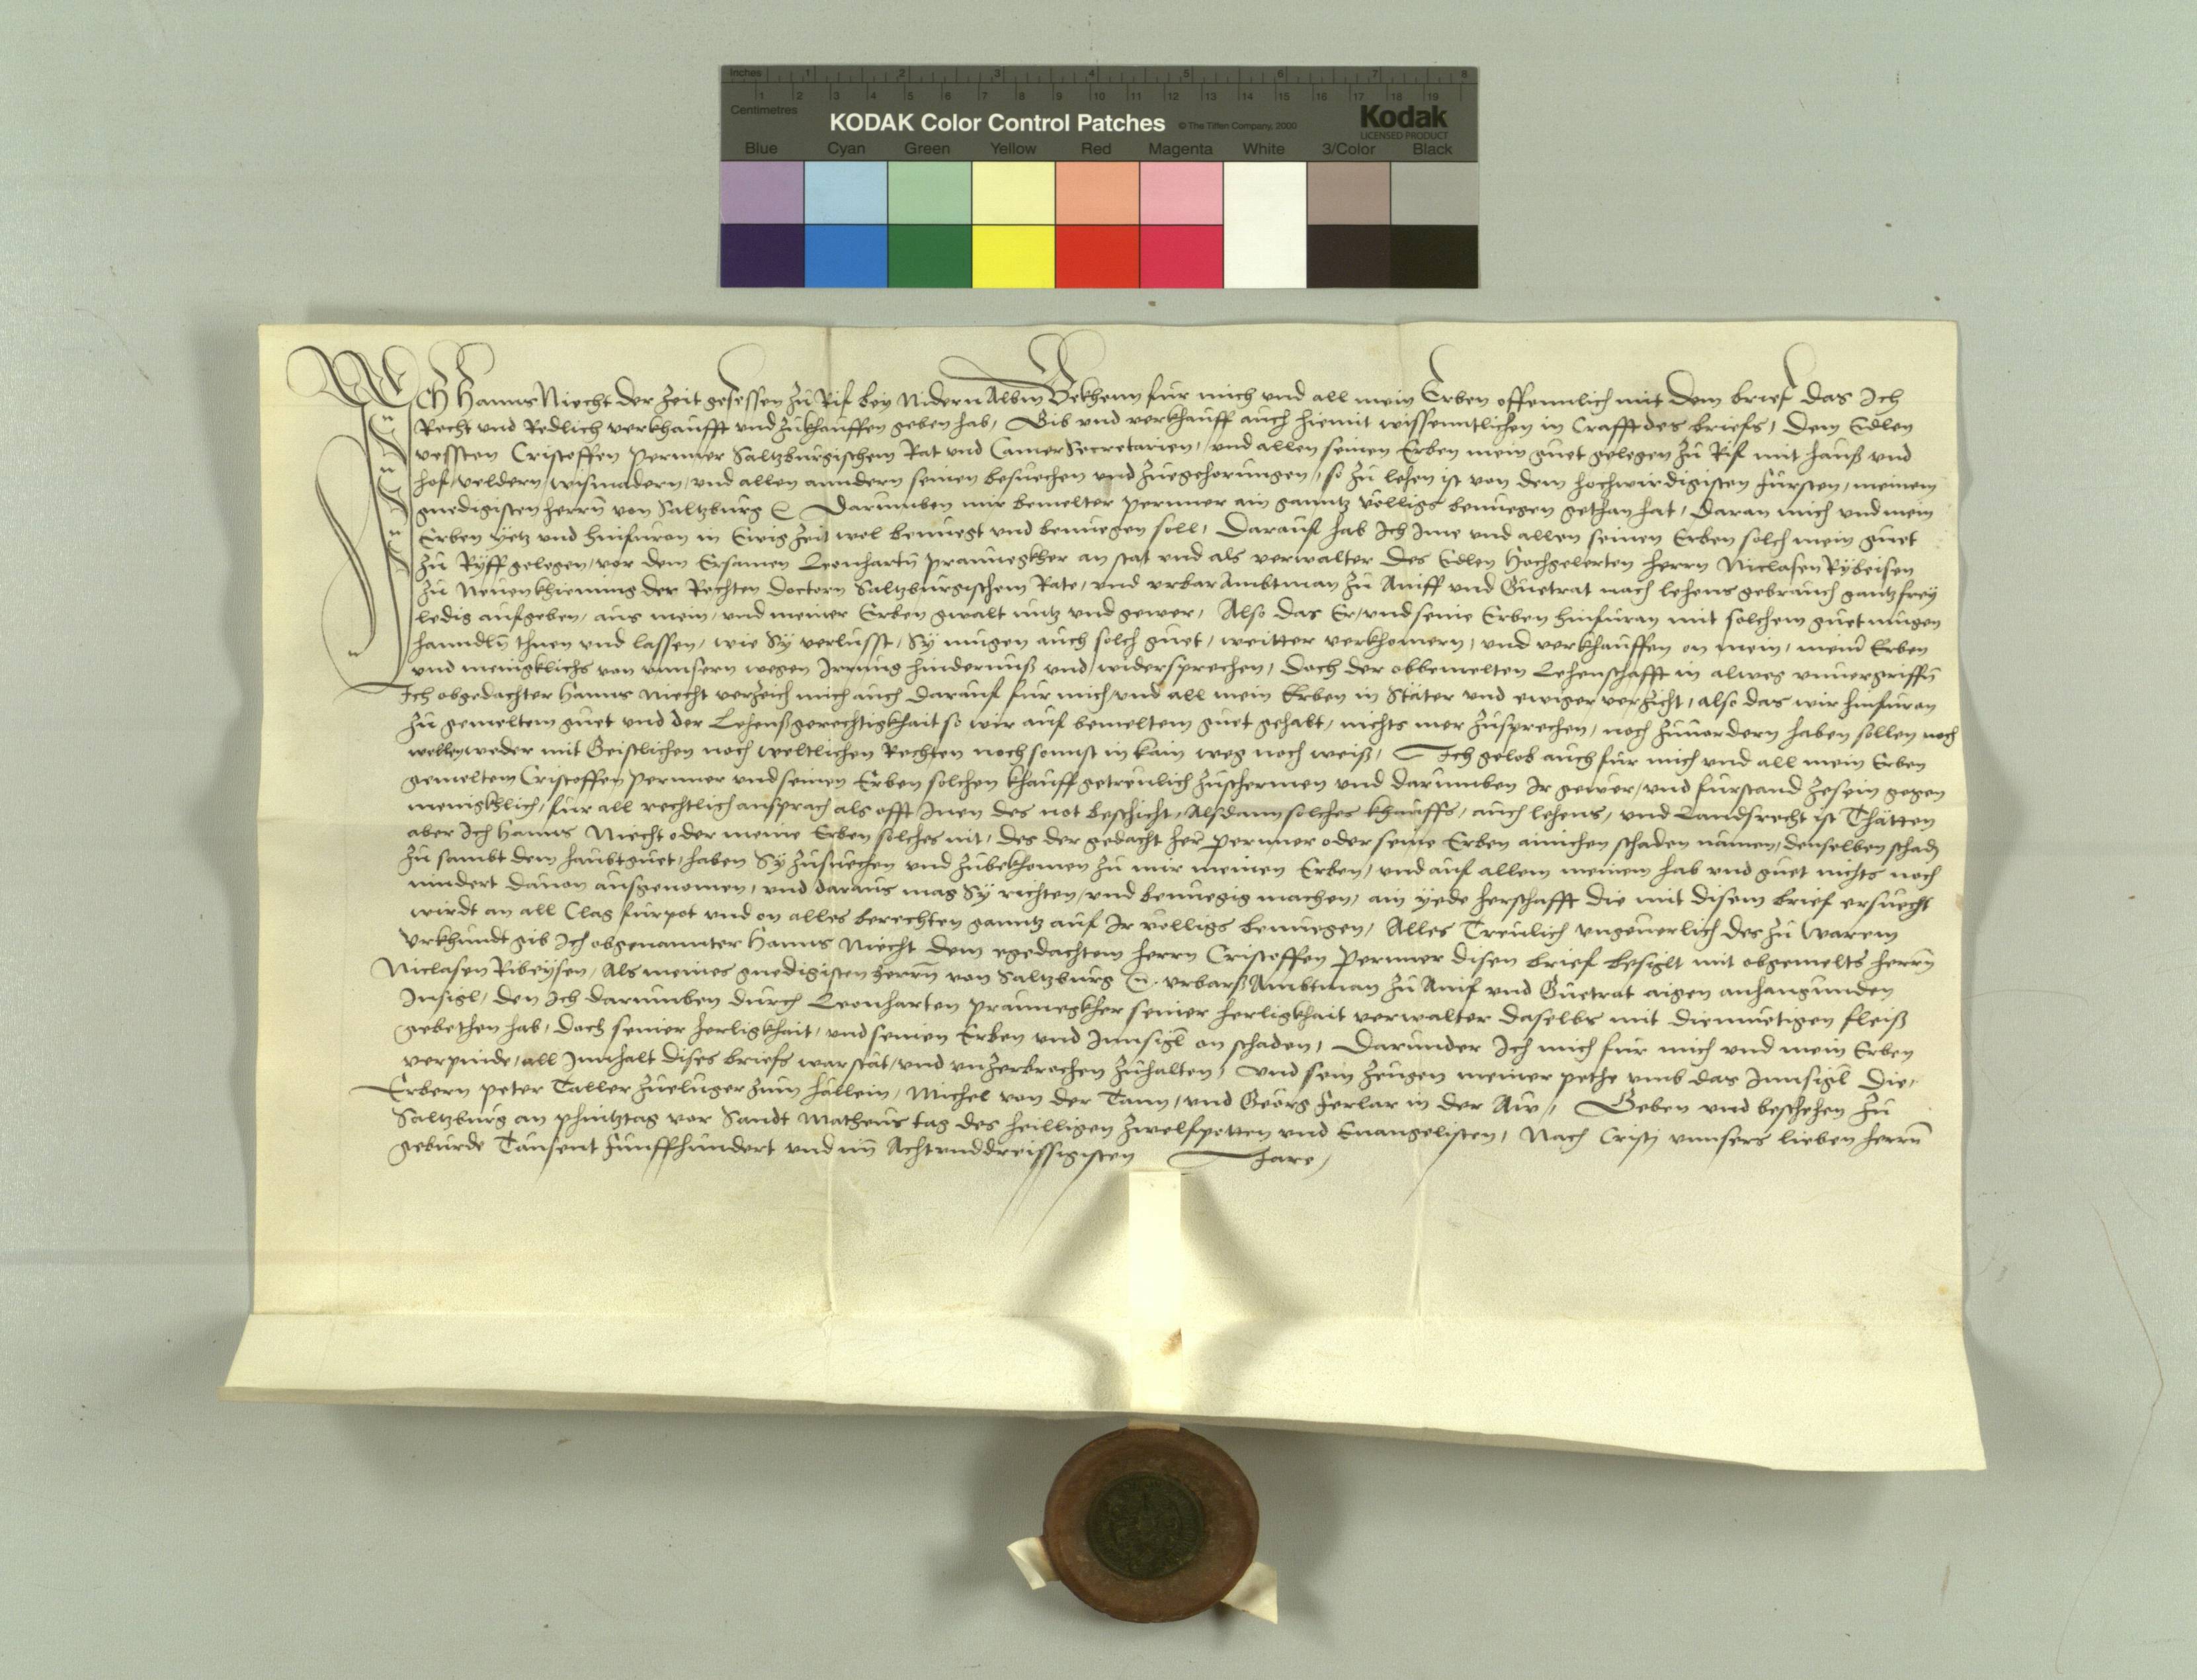 Inches 1 2 3 4 5 6 7 8
1 2 3 4 5 6 7 8 9 10 11 12 13 14 15 16 17 18 19
Centimetres
KODAK Color Control Patches © The Tiffen Company, 2000 Kodak
LICENSED PRODUCT
Blue Cyan Green Yellow Red Magenta White 3/Color Black
Ich Hanns Niecht der Zeit gesessen zu Rif bey Nidern Albm Bekhenn fur mich vnd all mein Erben offennlich mit dem brief das Ich
Recht vnd Redlich verkhaufft vnd zukhauffen geben hab, Gib vnd verkhauff auch hiemit wissenntlichen in Crafft des briefs, Dem Edlen
vessten Cristoffen Perner Saltzburgischem Rat vnd Camer Secretarien, vnd allen seinen Erben mein guet gelegen zu Rif mit hauß vnd
hof, veldern, wismadern, vnd allen anndern seinen besuechen vnd zuegehorungen, so zu lehen ist von dem hochwirdigisten fursten, meinem
gnedigisten herrn von Saltzburg Darumben mir bemelter Perner ain ganntz volligs benuegen gethan hat, daran mich vnd mein
Erben yetz vnd hinfuran in Ewig Zeit wol benuegt vnd benuegen soll, Darauf hab Ich Ime vnd allen seinen Erben solch mein guet
zu Ryff gelegen, vor dem Ersamen Leonhartn Prannegkher an stat vnd als verwalter des Edlen Hochgelerten herrn Niclasen Rybeisen
zu Neuenkhieming der Rechten doctorn Saltzburgischem Rate, vnd vrbar Ambtman zu Aniff vnd Guetrat nach lehens gebrauch gantz frey
ledig aufgeben, aus mein, vnd meiner Erben gwalt nutz vnd gewer, Also das Er, vnd seine Erben hinfuran mit solchem guet mugen
hanndln thuen vnd lassen, wie Sy verlusst, Sy mugen auch solch guet, weitter verkhomern, vnd verkhauffen on mein, meinr Erben
vnd menigklichs von vnnsern wegen Irrung hindernuß vnd widersprechen, doch der obbemelten Lehenschafft in alweg vnuergriffn
Ich obgedachter Hanns Niecht verzeich mich auch darauf fur mich vnd all mein Erben in Stäter vnd ewiger verzicht, also das wir hinfuran
zu gemeltem guet vnd der Lehenßgerechtigkhait so wir auf bemeltem guet gehabt, nichts mer zusprechen, noch zuuordern haben sollen noch
wellen weder mit Geistlichen noch weltlichen Rechten noch sonnst in kain weg noch weiß, Ich gelob auch fur mich vnd all mein Erben
gemeltem Cristoffen Perner vnd seinen Erben solchen khauff getreulich zuschermen vnd darumben Ir gewer, vnd furstand zesein gegen
menigklich, fur all rechtlich ansprach als offt Inen des not beschicht, Alsdann solches khauffs, auch lehens, vnd Landsrecht ist Thätten
aber Ich Hanns Niecht oder meine Erben solches nit, des der gedacht her Perner oder seine Erben ainichen schaden namen, denselben schadn
zu sambt dem haubtguet, haben Sy zusuechen vnd zubekhomen zu mir meinen Erben, vnd auf allem meinem hab vnd guet nichts noch
nindert dauon ausgenomen, vnd daraus mag Sy richten, vnd benuegig machen, ain yede herschafft die mit disem brief ersuecht
wirdt an all Clag furpot vnd on alles berechten ganntz auf Ir volligs benuegen, Alles Treulich vngeuerlich des zu warem
Vrkhundt gib Ich obgenannter Hanns Niecht dem egedachtem herrn Cristoffen Perner disen brief besiglt mit obgemelts herrn
Niclasen Ribeysen, Als meines gnedigisten herrn von Saltzburg vrbarß Ambtman zu Anif vnd Guetrat aigen anhangunden
Insigl, den Ich darumben durch Leonharten Prannegkher seiner herligkhait verwalter daselbs mit diemuetigen fleiß
gebethen hab, doch seiner herligkhait, vnd seinen Erben vnd Innsigl on schaden, Darunder Ich mich fur mich vnd mein Erben
verpinde, all Innhalt dises briefs war stat, vnd vnzerbrochen zuhalten, Vnd sein zeugen meiner pethe vmb das Innsigl Die
Erbern Peter Taller zueluger zum hallein, Michel von der Tann, vnd Georg Ferlar in der Aw, Geben vnd beschehen zu
Saltzburg an Phintztag vor Sandt Matheus tag des heilligen zwelfpotten vnd Euangelisten, Nach Cristi vnnsers lieben herrn
geburde Tausent Funffhundert vnd im Achtunddreissigisten Jare,